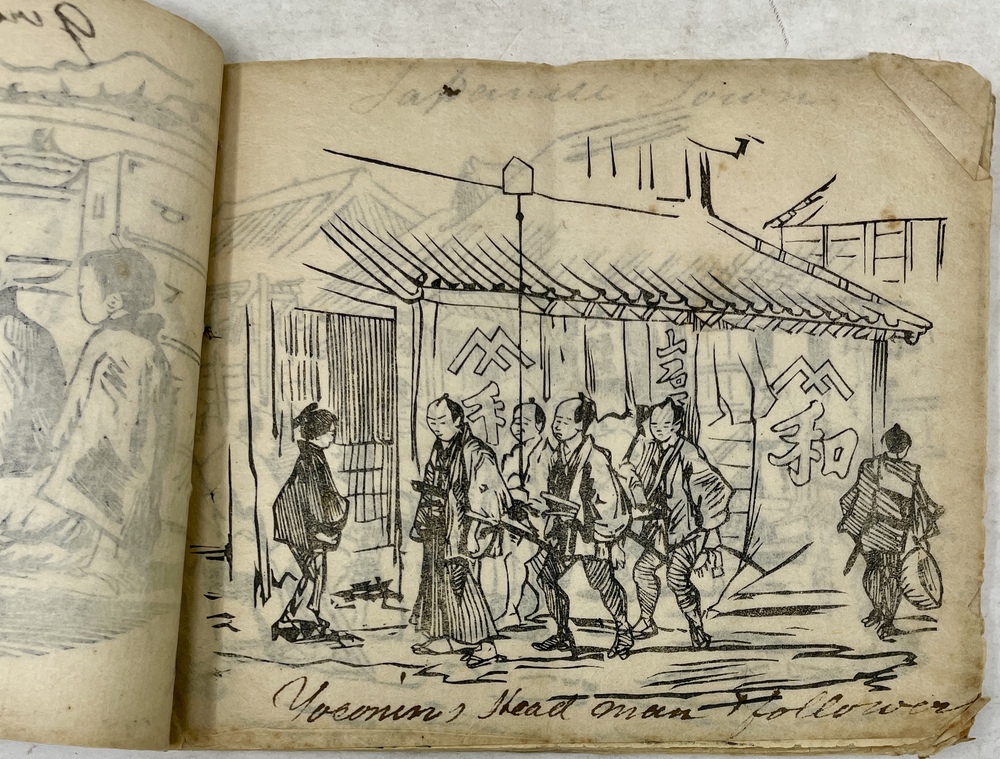 Japanese Town
和
吉
和
Yoconin's Head man & followers